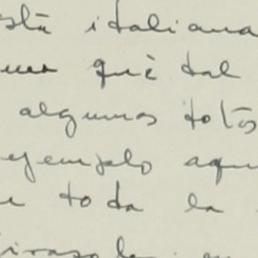 está italiana
qué tal
algunas fotos
ejemplo aqu
toda la